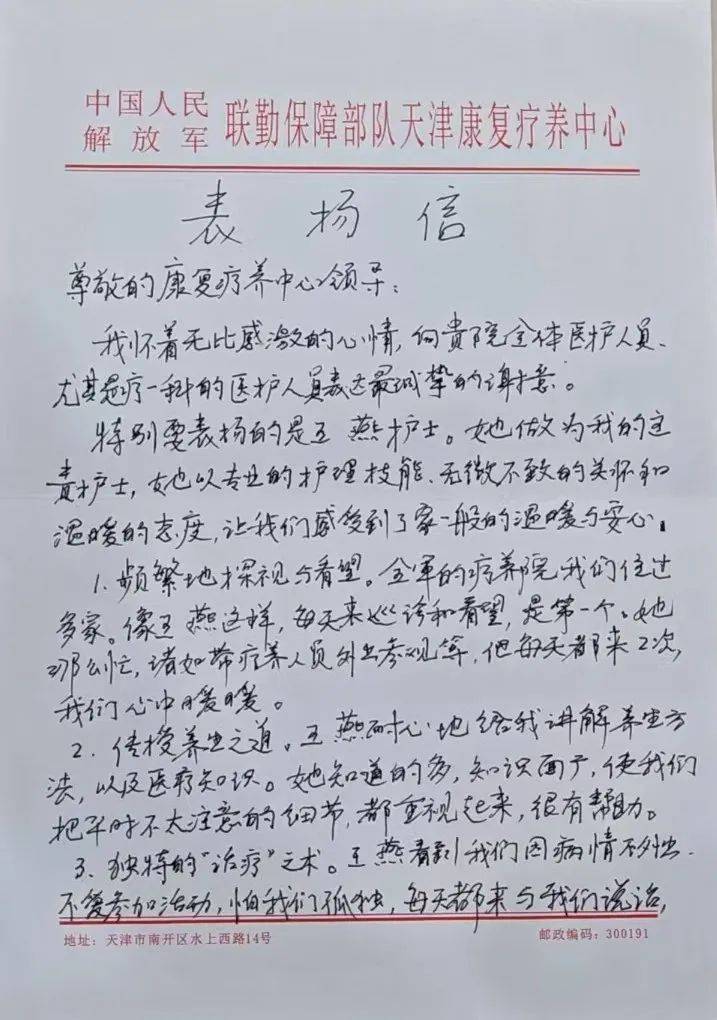 中国人民
解放军 联勤保障部队天津康复疗养中心
表扬信
尊敬的康复疗养中心领导：
我怀着无比感激的心情，向贵院全体医护人员、
尤其是疗一科的医护人员表达最诚挚的谢意。
特别要表扬的是王燕护士。她做为我的主
责护士，她以专业的护理技能、无微不致的关怀和
温暖的态度，让我们感受到了家一般的温暖与安心。
1.频繁地探视与看望。全军的疗养院我们住过
多家。像王燕这样，每天来巡诊和看望，是第一个。她
那么忙，诸如带疗养人员外出参观等，但每天都来2次，
我们心中暖暖。
2.传授养生之道。王燕耐心地给我讲解养生方
法，以及医疗知识。她知道的多，知识面广，使我们
把平时不太注意的细节，都重视起来，很有帮助。
3.独特的“治疗”之术。王燕看到我们因病情不外出、
不爱参加活动，怕我们孤独，每天都来与我们说话，
地址：天津市南开区水上西路14号 邮政编码：300191